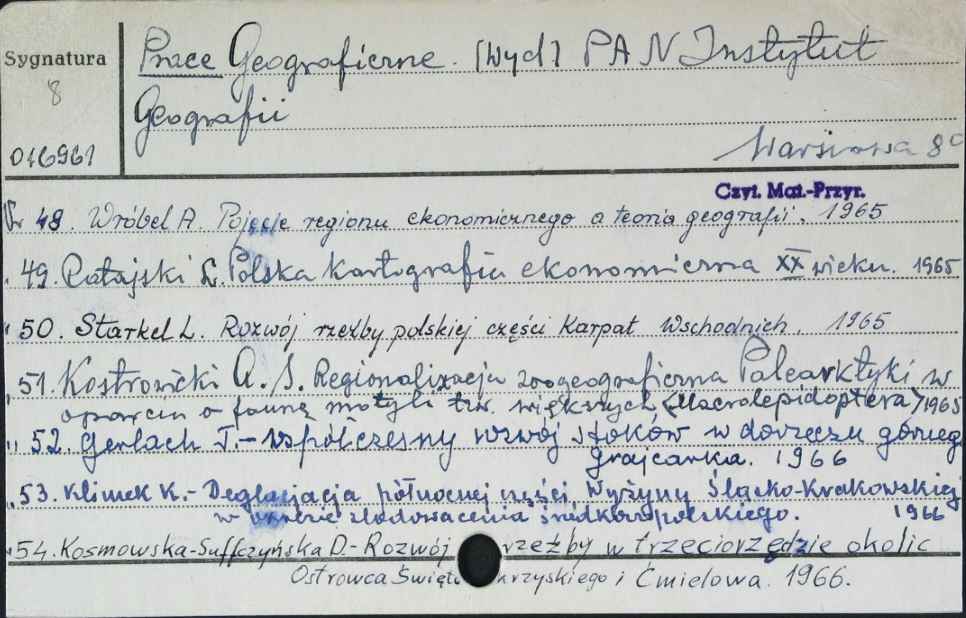 Sygnatura
8
016961
Prace Geograficzne. [Wyd] PAN Instytut
Geografii
Warszawa 8°
Czyt. Mat.-Przyr.
Nr 48. Wróbel A. Pojęcie regionu ekonomicznego a teoria geografii. 1965
" 49. Ratajski L. Polska kartografia ekonomiczna XX wieku. 1965
" 50. Starkel L. Rozwój rzeźby polskiej części Karpat Wschodnich. 1965
" 51. Kostrowicki A. S. Regionalizacja zoogeograficzna Palearktyki w
oparciu o faunę motyli tzw. większych (Macrolepidoptera) 1965
" 52. Gerlach T. - Współczesny rozwój stoków w dorzeczu górnego
Grajcarka. 1966
" 53. Klimek K. - Deglacjacja północnej części Wyżyny Śląsko-Krakowskiej
w okresie zlodowacenia środkowopolskiego. 1966
" 54. Kosmowska-Suffczyńska D. - Rozwój rzeźby w trzeciorzędzie okolic
Ostrowca Świętokrzyskiego i Ćmielowa. 1966.